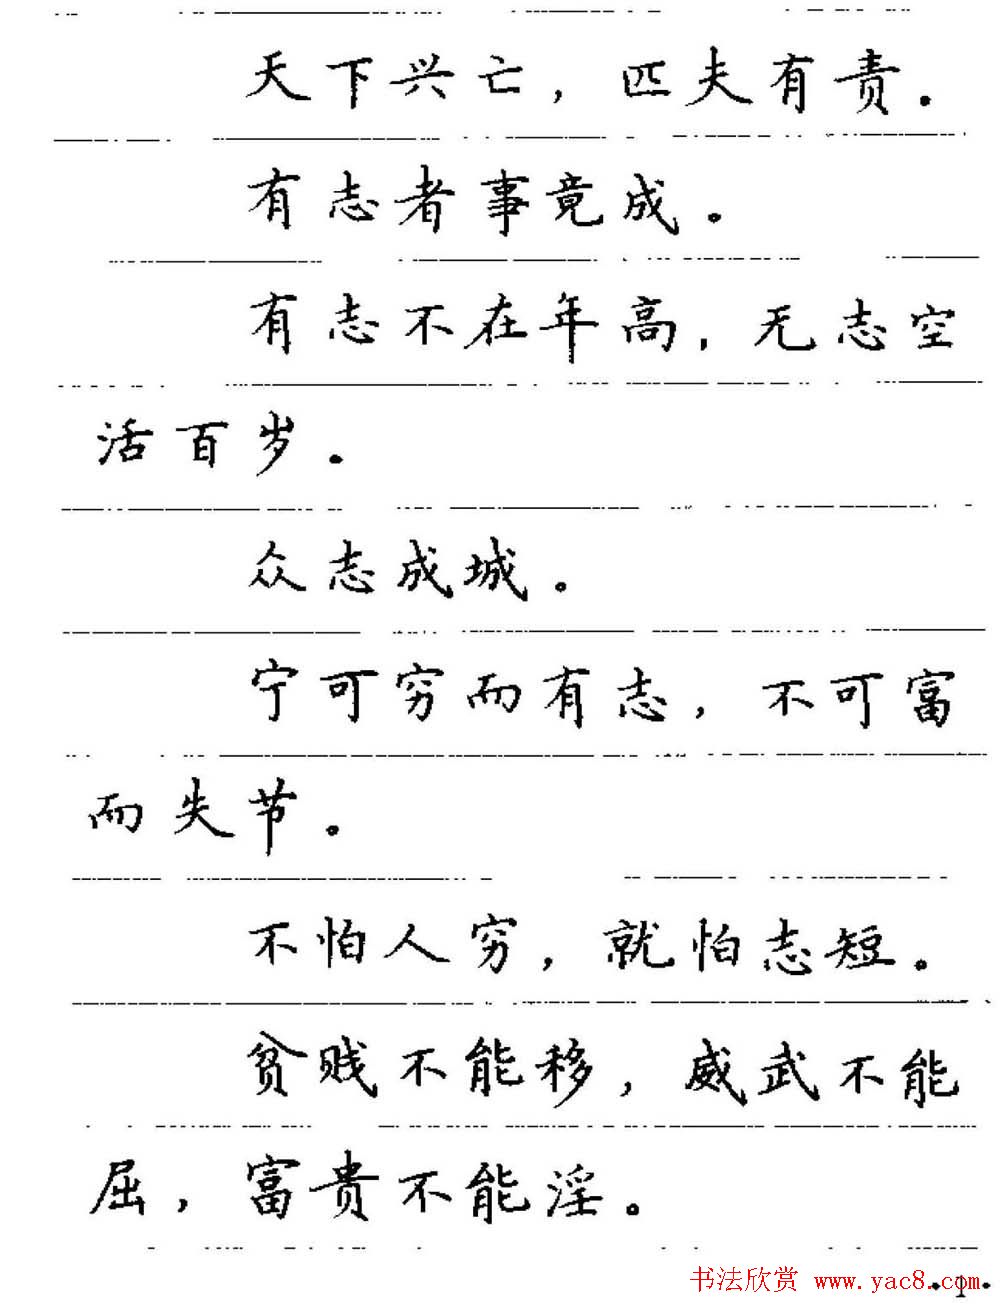 天下兴亡，匹夫有责.
有志者事竟成。
有志不在年高，无志空
活百岁.
众志成城。
宁可穷而有志，不可富
而失节。
不怕人穷，就怕志短。
贫贱不能移，威武不能
屈，富贵不能淫。
书法欣赏 www.yac8.com
·1·